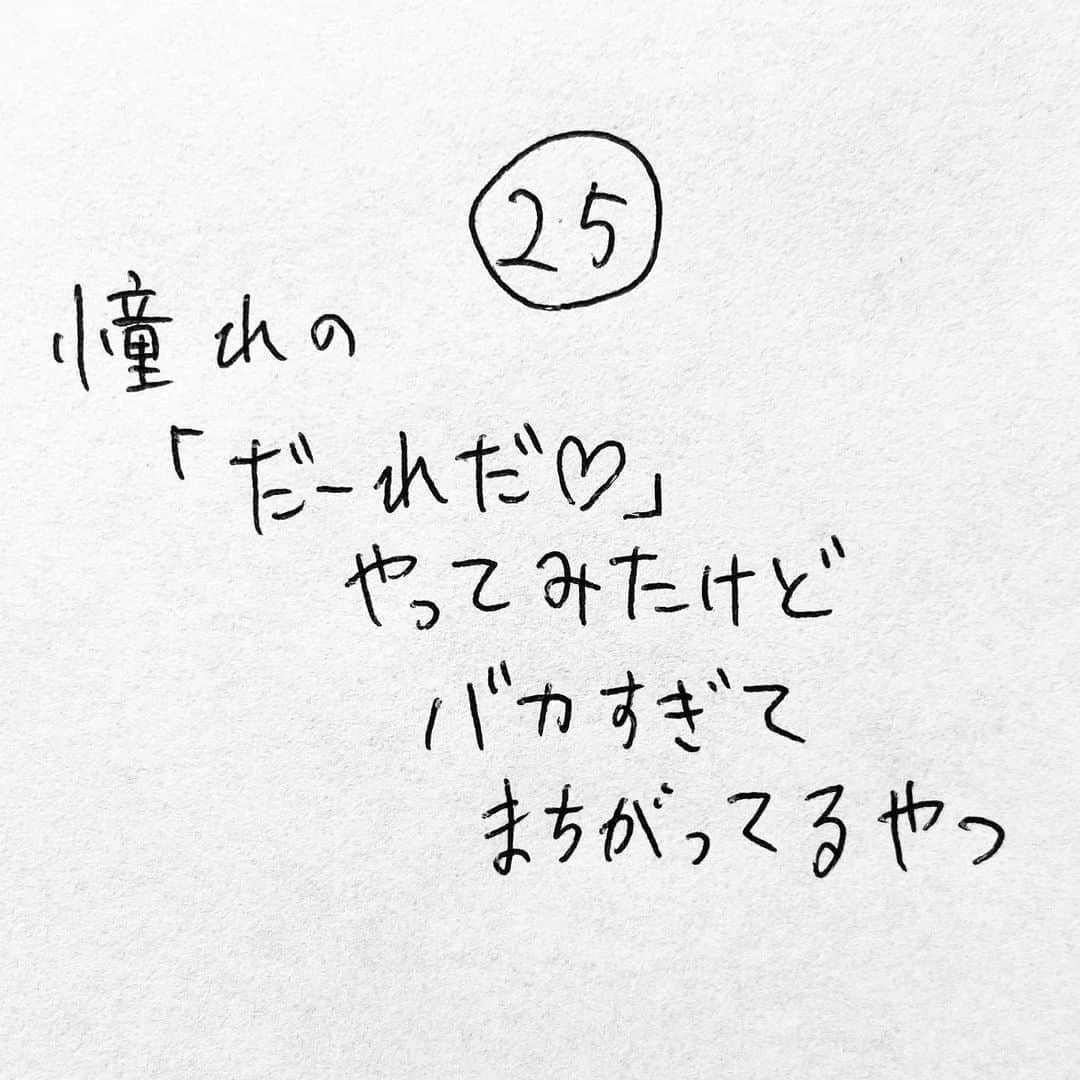 ㉕
憧れの
「だーれだ♡」
やってみたけど
バカすぎて
まちがってるやつ